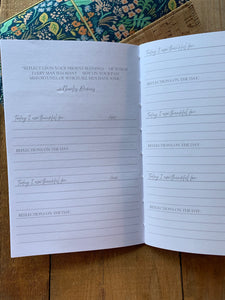 "REFLECT UPON YOUR PRESENT BLESSINGS - OF WHICH
EVERY MAN HAS MANY - NOT ON YOUR PAST
MISFORTUNES, OF WHICH ALL MEN HAVE SOME."
Charles Dickens
Today I am thankful for:
Date:
REFLECTIONS ON THE DAY:
Today I am thankful for:
Date:
REFLECTIONS ON THE DAY:
Today I am thankful for:
Date:
REFLECTIONS ON THE DAY:
Today I am thankful for:
REFLECTIONS ON THE DAY:
Today I am thankful for:
REFLECTIONS ON THE DAY:
Today I am thankful for:
REFLECTIONS ON THE DAY: